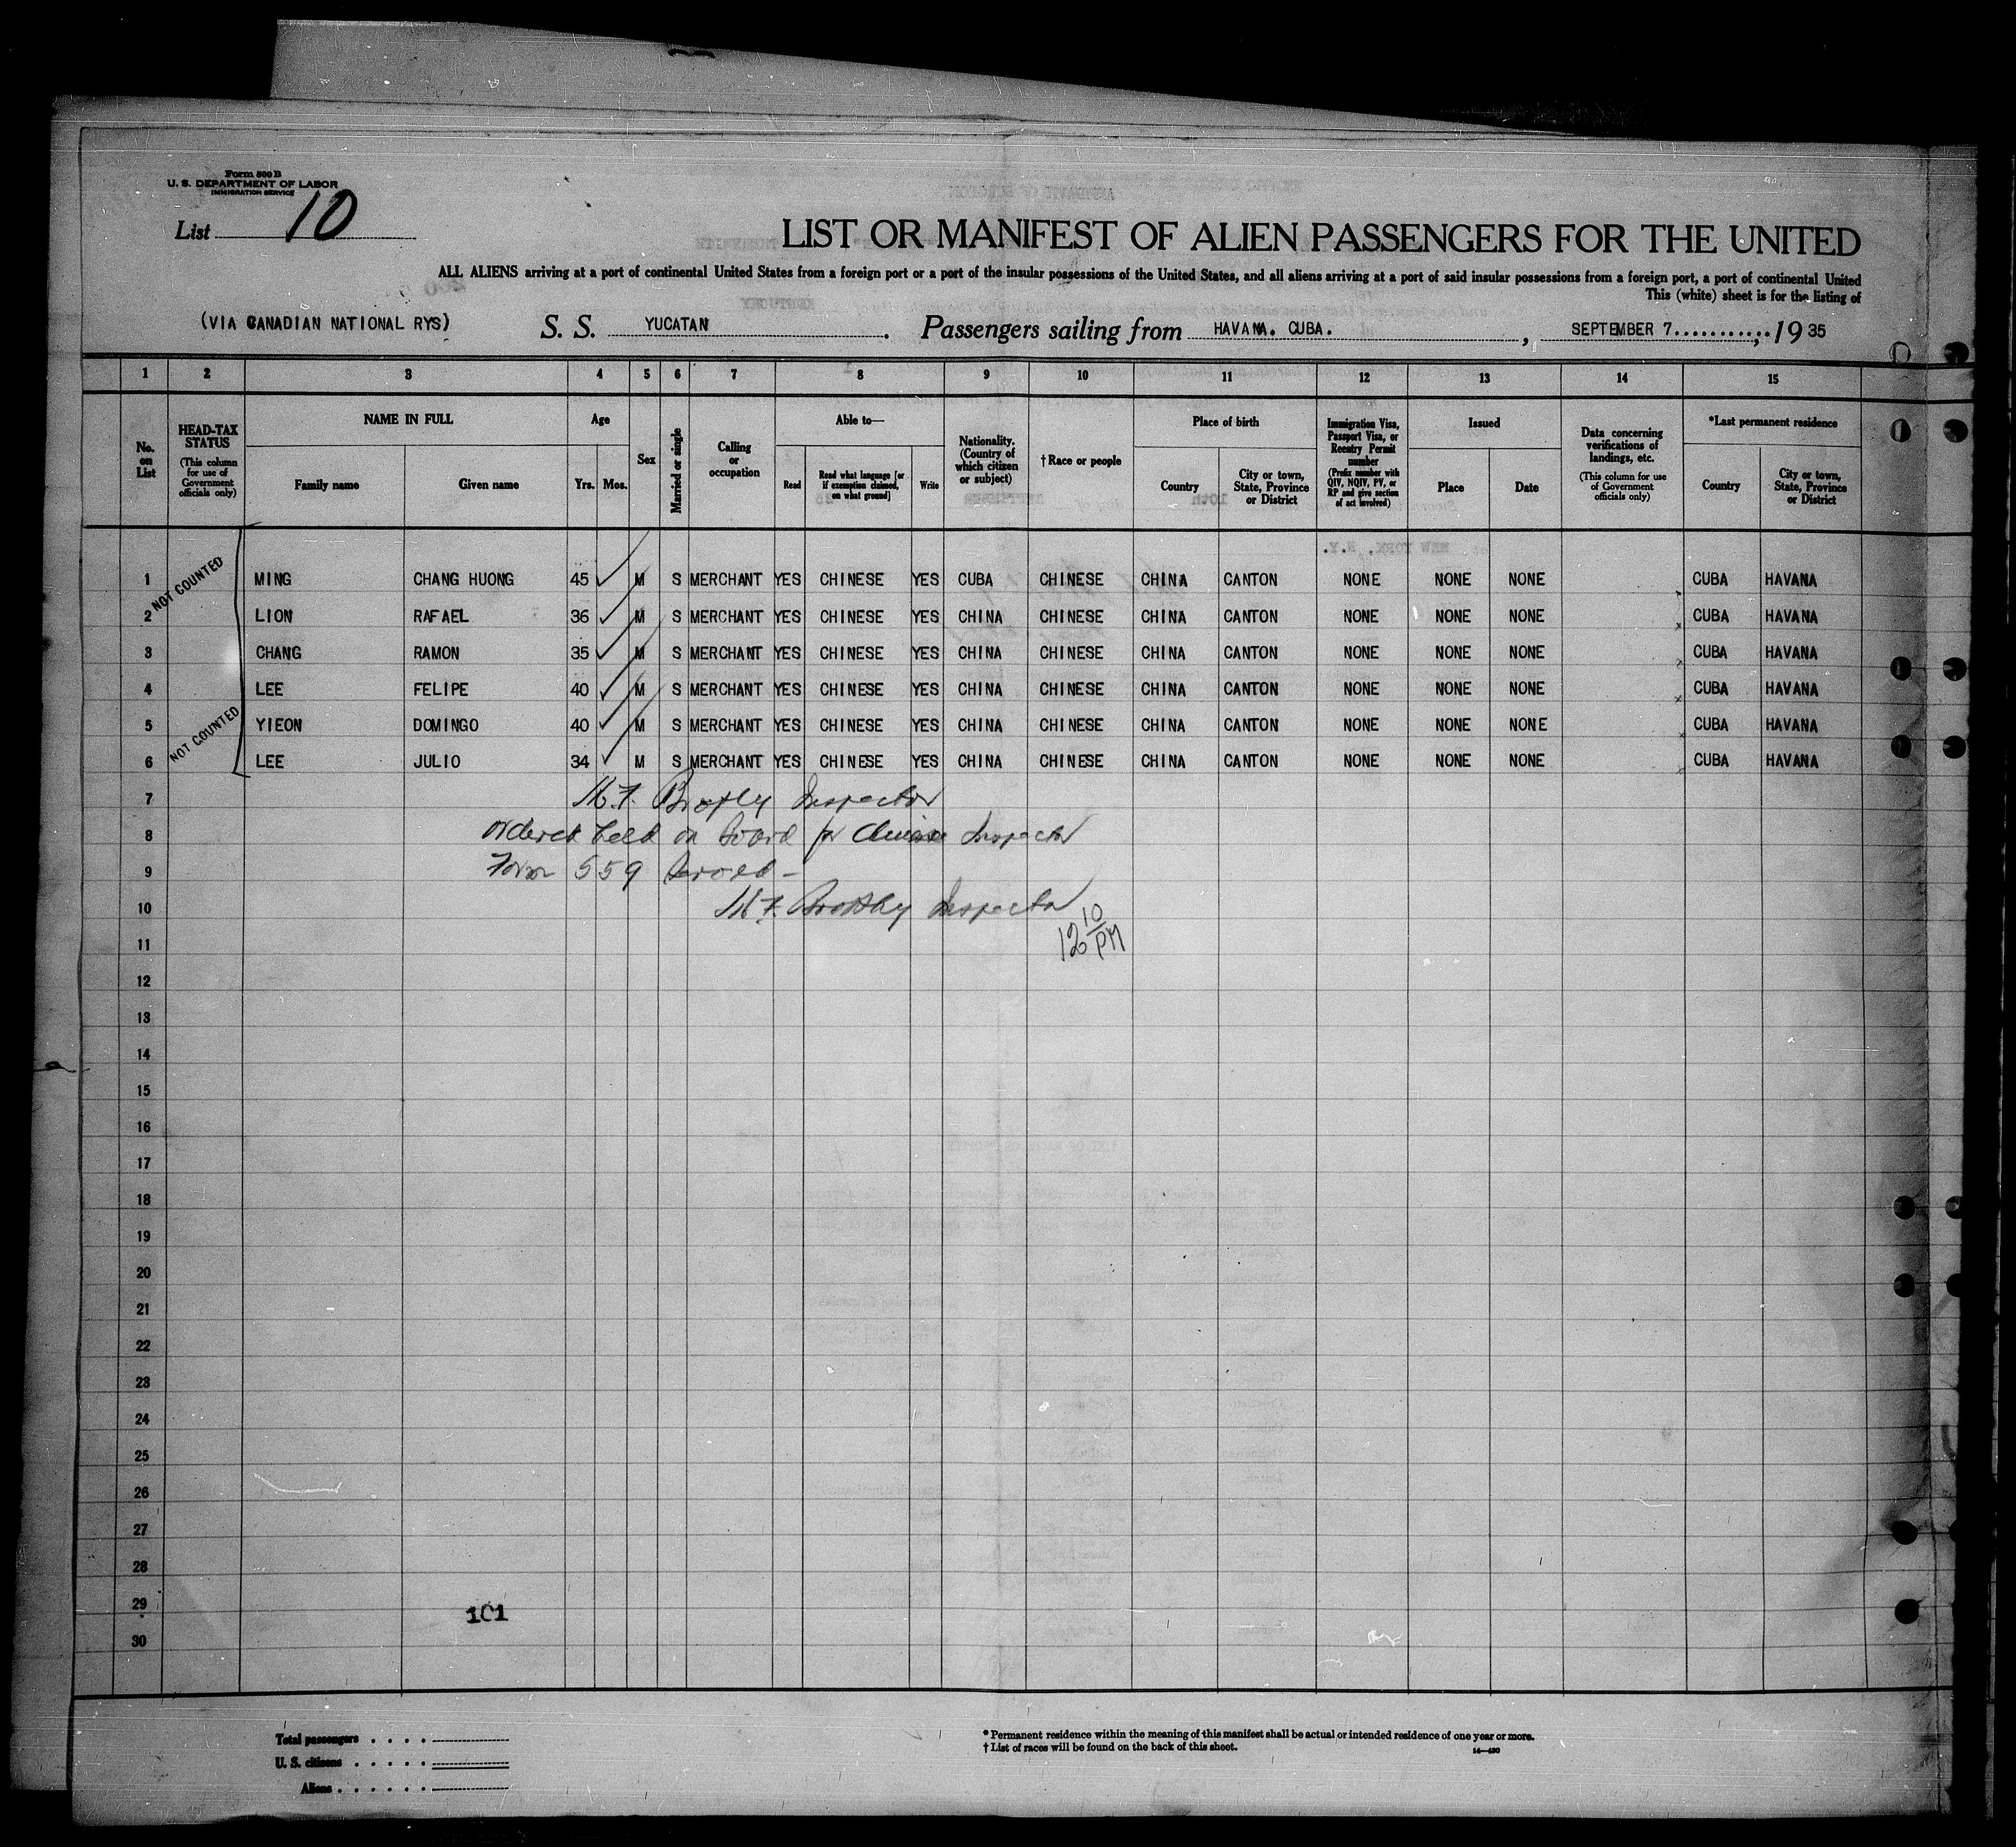 Form 500 B
U. S. DEPARTMENT OF LABOR
IMMIGRATION SERVICE
List 10
LIST OR MANIFEST OF ALIEN PASSENGERS FOR THE UNITED
ALL ALIENS arriving at a port of continental United States from a foreign port or a port of the insular possessions of the United States, and all aliens arriving at a port of said insular possessions from a foreign port, a port of continental United
This (white) sheet is for the listing of
(VIA CANADIAN NATIONAL RYS) S. S. YUCATAN. Passengers sailing from HAVANA. CUBA., SEPTEMBER 7..........., 19 35
1 2 3 4 5 6 7 8 9 10 11 12 13 14 15
No. on List
HEAD-TAX STATUS (This column for use of Government officials only)
NAME IN FULL
Family name Given name
Age
Yrs. Mos.
Sex
Married or single
Calling or occupation
Able to—
Read Read what language [or if exemption claimed, on what ground] Write
Nationality. (Country of which citizen or subject)
†Race or people
Place of birth
Country City or town, State, Province or District
Immigration Visa, Passport Visa, or Reentry Permit number (Prefix number with QIV, NQIV, PV, or RP and give section of act involved)
Issued
Place Date
Data concerning verifications of landings, etc. (This column for use of Government officials only)
*Last permanent residence
Country City or town, State, Province or District
NOT COUNTED
1 MING CHANG HUONG 45 M S MERCHANT YES CHINESE YES CUBA CHINESE CHINA CANTON NONE NONE NONE CUBA HAVANA
2 LION RAFAEL 36 M S MERCHANT YES CHINESE YES CHINA CHINESE CHINA CANTON NONE NONE NONE CUBA HAVANA
3 CHANG RAMON 35 M S MERCHANT YES CHINESE YES CHINA CHINESE CHINA CANTON NONE NONE NONE CUBA HAVANA
4 LEE FELIPE 40 M S MERCHANT YES CHINESE YES CHINA CHINESE CHINA CANTON NONE NONE NONE CUBA HAVANA
NOT COUNTED
5 YIEON DOMINGO 40 M S MERCHANT YES CHINESE YES CHINA CHINESE CHINA CANTON NONE NONE NONE CUBA HAVANA
6 LEE JULIO 34 M S MERCHANT YES CHINESE YES CHINA CHINESE CHINA CANTON NONE NONE NONE CUBA HAVANA
7 Inspector
8 Ordered held on board for Chinese Inspector
9 Form 559 Served -
10 Inspector
11 12 10/PM
12
13
14
15
16
17
18
19
20
21
22
23
24
25
26
27
28
29 101
30
Total passengers . . . .
U. S. citizens . . . . .
Aliens . . . . . .
* Permanent residence within the meaning of this manifest shall be actual or intended residence of one year or more.
† List of races will be found on the back of this sheet.